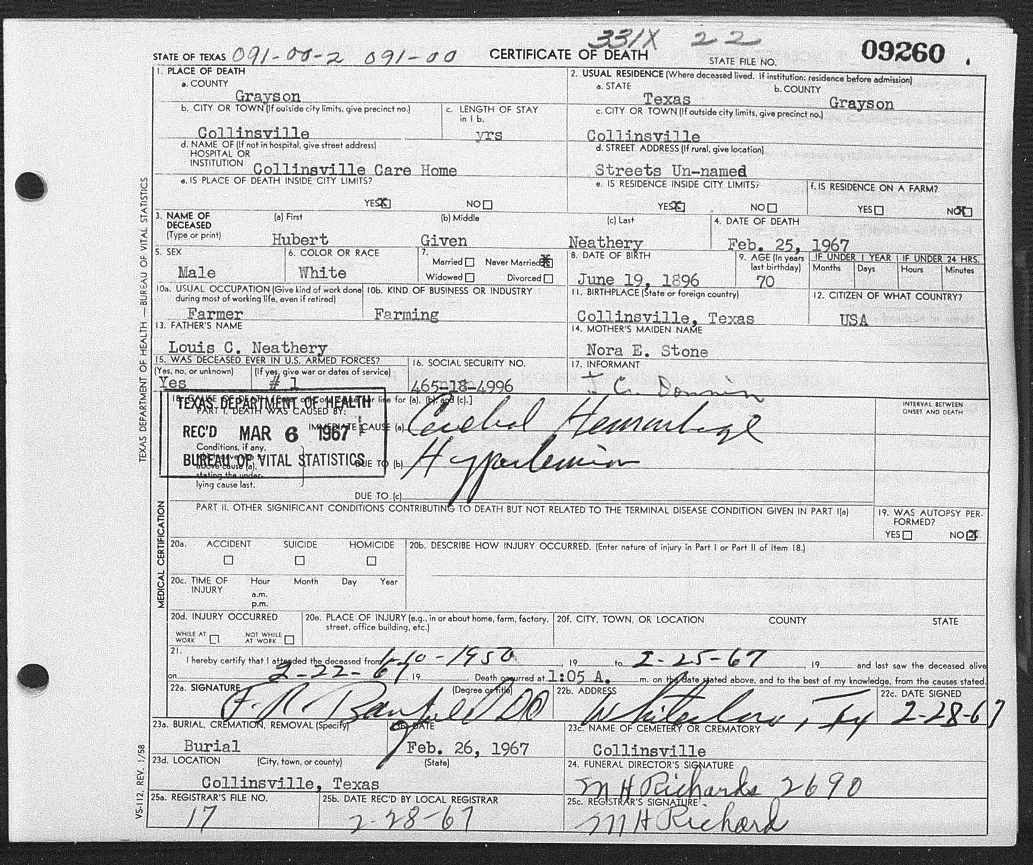 331X 22
STATE OF TEXAS 091-00-2 091-00 CERTIFICATE OF DEATH STATE FILE NO. 09260
1. PLACE OF DEATH
a. COUNTY
Grayson
2. USUAL RESIDENCE (Where deceased lived. If institution: residence before admission)
a. STATE b. COUNTY
Texas Grayson
b. CITY OR TOWN (If outside city limits, give precinct no.)
Collinsville
c. LENGTH OF STAY in 1 b.
yrs
c. CITY OR TOWN (If outside city limits, give precinct no.)
Collinsville
d. NAME OF (If not in hospital, give street address)
HOSPITAL OR
INSTITUTION Collinsville Care Home
d. STREET ADDRESS (If rural, give location)
Streets Un-named
e. IS PLACE OF DEATH INSIDE CITY LIMITS?
YES NO
e. IS RESIDENCE INSIDE CITY LIMITS?
YES NO
f. IS RESIDENCE ON A FARM?
YES NO
3. NAME OF DECEASED (Type or print)
(a) First (b) Middle (c) Last
Hubert Given Neathery
4. DATE OF DEATH
Feb. 25, 1967
5. SEX
Male
6. COLOR OR RACE
White
7.
Married Never Married
Widowed Divorced
8. DATE OF BIRTH
June 19, 1896
9. AGE (In years last birthday)
70
IF UNDER 1 YEAR IF UNDER 24 HRS.
Months Days Hours Minutes
10a. USUAL OCCUPATION (Give kind of work done during most of working life, even if retired)
Farmer
10b. KIND OF BUSINESS OR INDUSTRY
Farming
11. BIRTHPLACE (State or foreign country)
Collinsville, Texas
12. CITIZEN OF WHAT COUNTRY?
USA
13. FATHER'S NAME
Louis C. Neathery
14. MOTHER'S MAIDEN NAME
Nora E. Stone
15. WAS DECEASED EVER IN U.S. ARMED FORCES?
(Yes, no, or unknown) (If yes, give war or dates of service)
Yes # 1
16. SOCIAL SECURITY NO.
465-18-4996
17. INFORMANT
TEXAS DEPARTMENT OF HEALTH
REC'D MAR 6 1967
BUREAU OF VITAL STATISTICS
PART I. DEATH WAS CAUSED BY:
IMMEDIATE CAUSE (a) Cerebral Hemorrhage
INTERVAL BETWEEN ONSET AND DEATH
Conditions, if any,
stating the under-
lying cause last.
DUE TO (b) Hypertension
DUE TO (c)
PART II. OTHER SIGNIFICANT CONDITIONS CONTRIBUTING TO DEATH BUT NOT RELATED TO THE TERMINAL DISEASE CONDITION GIVEN IN PART I(a)
19. WAS AUTOPSY PERFORMED?
YES NO
20a. ACCIDENT SUICIDE HOMICIDE
20b. DESCRIBE HOW INJURY OCCURRED. (Enter nature of injury in Part I or Part II of Item 18.)
20c. TIME OF INJURY Hour Month Day Year
a.m.
p.m.
20d. INJURY OCCURRED
WHILE AT WORK NOT WHILE AT WORK
20e. PLACE OF INJURY (e.g., in or about home, farm, factory, street, office building, etc.)
20f. CITY, TOWN, OR LOCATION COUNTY STATE
21.
I hereby certify that I attended the deceased from 1-10-1950, 19 to 2-25-67, 19 and last saw the deceased alive
on 2-22-67, 19 Death occurred at 1:05 A. m. on the date stated above, and to the best of my knowledge, from the causes stated.
22a. SIGNATURE (Degree or title)
DO
22b. ADDRESS
Whitesboro, Tex
22c. DATE SIGNED
2-28-67
23a. BURIAL, CREMATION, REMOVAL (Specify)
Burial
DATE
Feb. 26, 1967
23c. NAME OF CEMETERY OR CREMATORY
Collinsville
23d. LOCATION (City, town, or county) (State)
Collinsville, Texas
24. FUNERAL DIRECTOR'S SIGNATURE
M H Richards 2690
25a. REGISTRAR'S FILE NO.
17
25b. DATE REC'D BY LOCAL REGISTRAR
2-28-67
25c. REGISTRAR'S SIGNATURE
M H Richard
TEXAS DEPARTMENT OF HEALTH — BUREAU OF VITAL STATISTICS
MEDICAL CERTIFICATION
VS-112, REV. 1/58